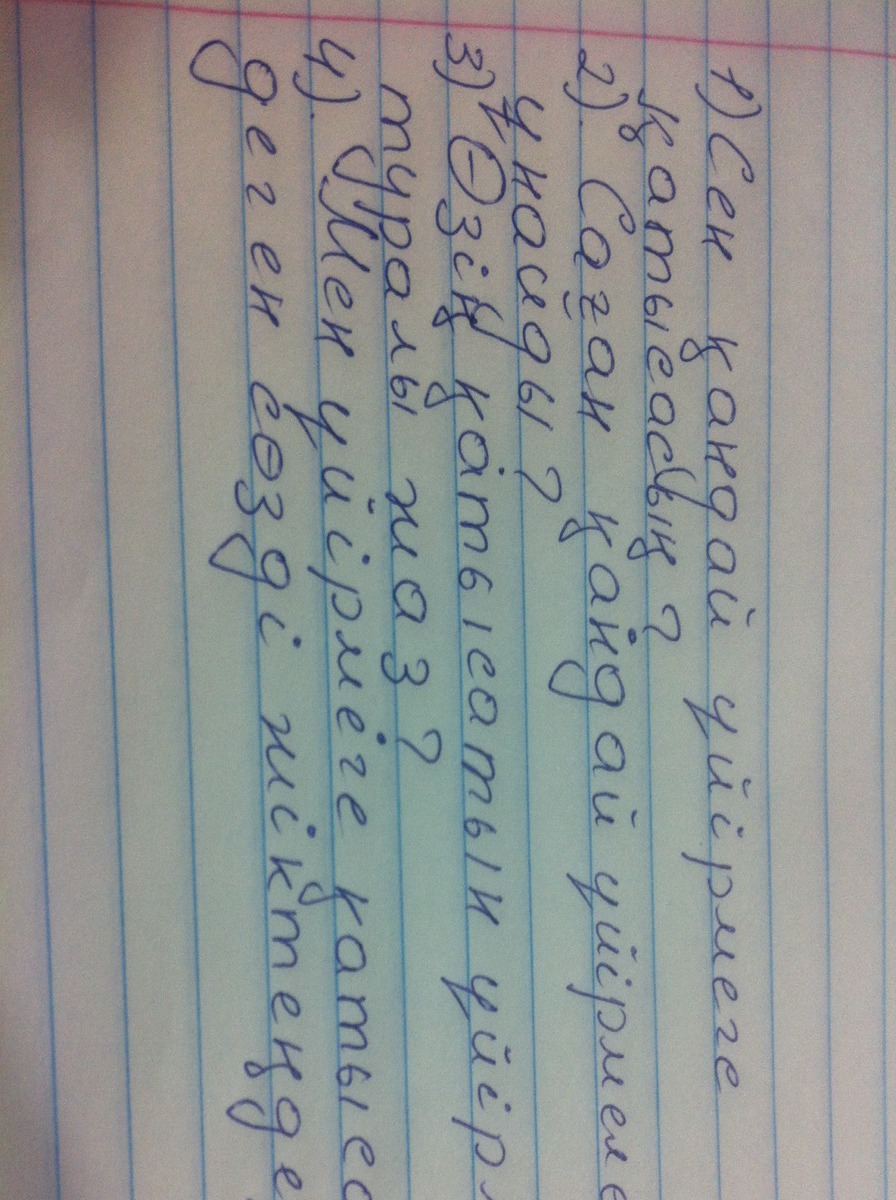 1) Сен қандай үйірмеге
қатысасың?
2). Саған қандай үйірмеле
ұнайды?
3) Өзің қатысатын үйір
туралы жаз?
4). Мен үйірмеге қатыс
деген сөзді жіктеңде